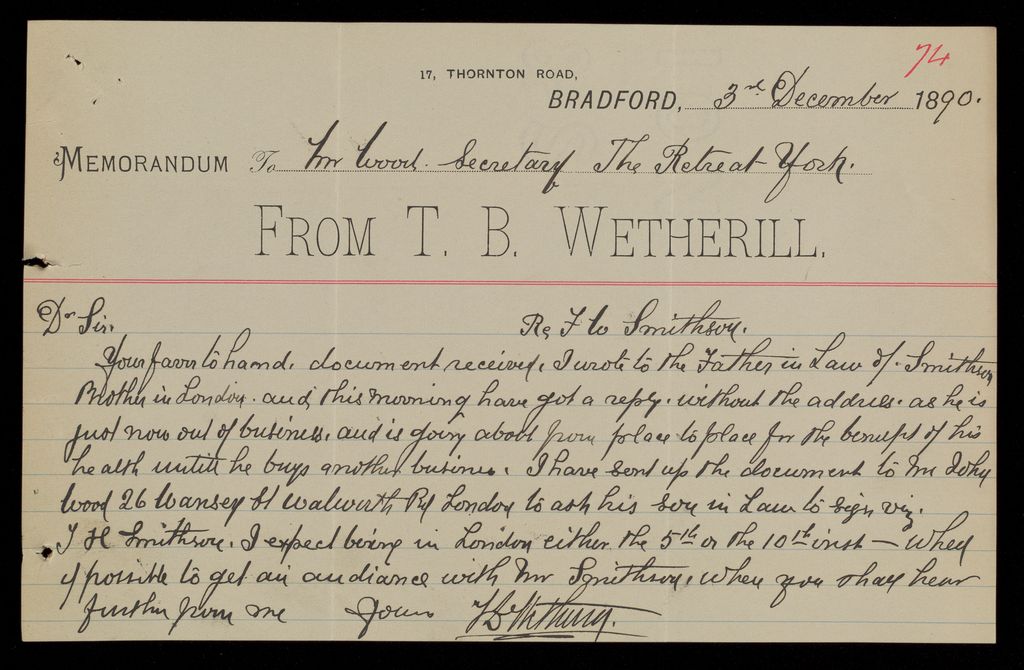 74
17, THORNTON ROAD,
BRADFORD, 3rd December 1890.
MEMORANDUM To Mr Wood. Secretary The Retreat York.
FROM T. B. WETHERILL.
Dr Sir. Re F W Smithson.
Your favor to hand. document received. I wrote to the Father in Law of. Smithson
Brother in London. and this morning have got a reply. without the address. as he is
just now out of business. and is going about from place to place for the benefit of his
health untill he buys another business. I have sent up the document to Mr John
Wood 26 Wansey St Walworth Rd London to ask his son in Law to sign viz.
J H Smithson. I expect being in London either the 5th or the 10th inst — when
if possible to get an audiance with Mr Smithson. when you shall hear
further from me Yours T B Wetherill.